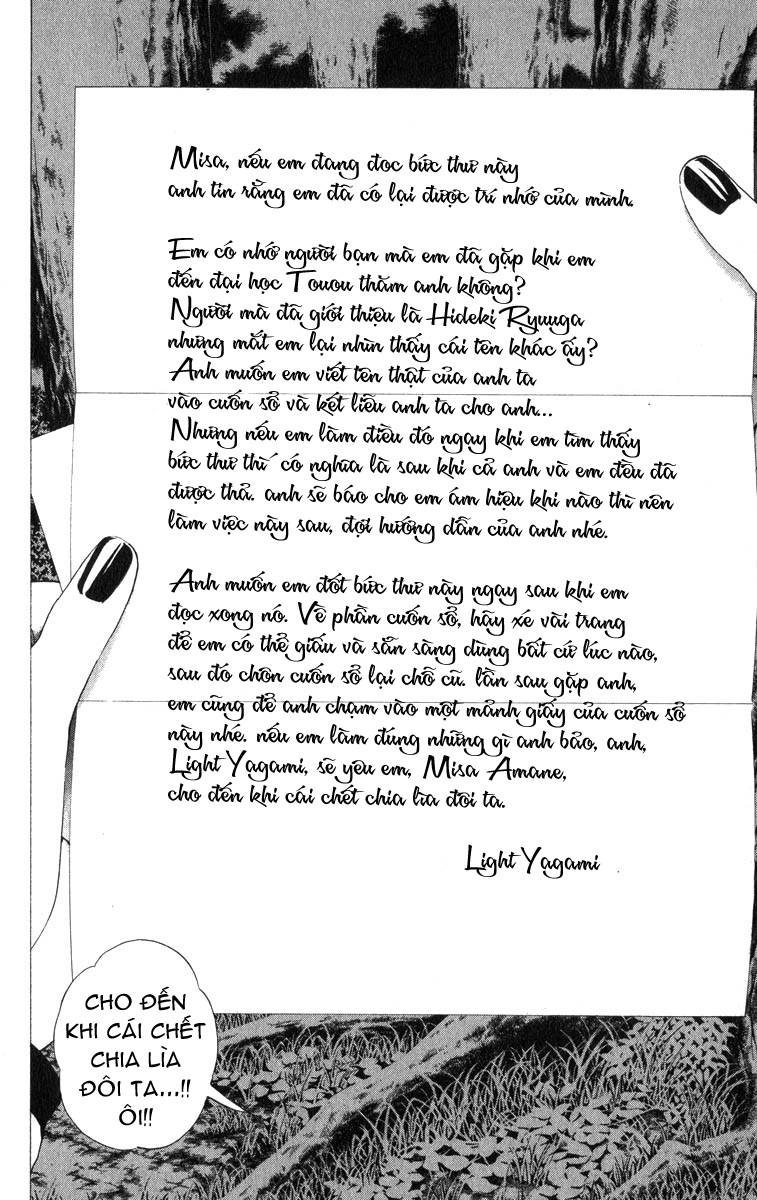 Misa, nếu em đang đọc bức thư này
anh tin rằng em đã có lại được trí nhớ của mình.
Em có nhớ người bạn mà em đã gặp khi em
đến đại học Touou thăm anh không?
Người mà đã giới thiệu là Hideki Ryuuga
nhưng mắt em lại nhìn thấy cái tên khác ấy?
Anh muốn em viết tên thật của anh ta
vào cuốn sổ và kết liễu anh ta cho anh...
Nhưng nếu em làm điều đó ngay khi em tìm thấy
bức thư thì có nghĩa là sau khi cả anh và em đều đã
được thả. anh sẽ báo cho em ám hiệu khi nào thì nên
làm việc này sau, đợi hướng dẫn của anh nhé.
Anh muốn em đốt bức thư này ngay sau khi em
đọc xong nó. Về phần cuốn sổ, hãy xé vài trang
để em có thể giấu và sẵn sàng dùng bất cứ lúc nào,
sau đó chôn cuốn sổ lại chỗ cũ. lần sau gặp anh,
em cũng để anh chạm vào một mảnh giấy của cuốn sổ
này nhé. nếu em làm đúng những gì anh bảo, anh,
Light Yagami, sẽ yêu em, Misa Amane,
cho đến khi cái chết chia lìa đôi ta.
Light Yagami
CHO ĐẾN
KHI CÁI CHẾT
CHIA LÌA
ĐÔI TA...!!
ÔI!!